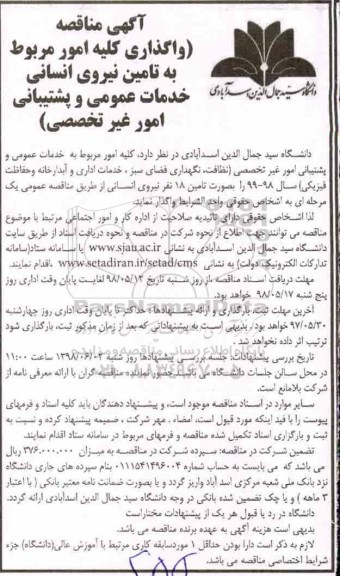 آگهی مناقصه
(واگذاری کلیه امور مربوط
به تامین نیروی انسانی
خدمات عمومی و پشتیبانی
امور غیر تخصصی)
دانشگاه سید جمال الدین اسدآبادی
دانشگاه سید جمال الدین اسدآبادی در نظر دارد، کلیه امور مربوط به خدمات عمومی و
پشتیبانی امور غیر تخصصی (نظافت، نگهداری فضای سبز ، خدمات اداری و آبدارخانه وحفاظت
فیزیکی) سال ۹۸-۹۹ را بصورت تامین ۱۸ نفر نیروی انسانی از طریق مناقصه عمومی یک
مرحله ای به اشخاص حقوقی واجد شرایط واگذار نماید.
لذا اشخاص حقوقی دارای تائیدیه صلاحیت از اداره کار و امور اجتماعی مرتبط با موضوع
مناقصه می توانند جهت اطلاع از نحوه شرکت در مناقصه و نحوه دریافت اسناد از طریق سایت
دانشگاه سید جمال الدین اسدآبادی به نشانی www.sjau.ac.ir یا سامانه ستاد(سامانه
تدارکات الکترونیک دولت) به نشانی www.setadiran.ir/setad/cms اقدام نمایند.
مهلت دریافت اسناد مناقصه از روز شنبه تاریخ ۹۸/۰۵/۱۲ لغایت پایان وقت اداری روز
پنج شنبه ۹۸/۰۵/۱۷ خواهد بود.
آخرین مهلت ثبت، بارگذاری و ارائه پیشنهادها، حداکثر تا پایان وقت اداری روز چهارشنبه
۹۷/۰۵/۳۰ خواهد بود، بدیهی است به پیشنهاداتی که بعد از زمان مذکور ثبت، بارگذاری شود
ترتیب اثر داده نخواهد شد.
تاریخ بررسی پیشنهادات: جلسه بررسی پیشنهادها روز شنبه ۱۳۹۸/۰۶/۰۲ ساعت ۱۱:۰۰
در محل سالن جلسات دانشگاه می باشد، حضور نماینده مناقصه گران با ارائه معرفی نامه از
شرکت بلامانع است.
سایر موارد در اسناد مناقصه موجود است، و پیشنهاد دهندگان باید کلیه اسناد و فرمهای
پیوست را با قید اینکه مورد قبول است، امضاء ، مهر شرکت ، ضمیمه پیشنهاد کرده و نسبت به
ثبت و بارگزاری اسناد تکمیل شده مناقصه و فرمهای مربوط در سامانه ستاد اقدام نمایند.
تضمین شرکت در مناقصه: سپرده شرکت در مناقصه به میزان ۳۷۶.۰۰۰.۰۰۰ ریال
می باشد که می بایست به حساب شماره ۰۱۱۱۵۴۱۴۹۶۰۰۴ بنام سپرده های جاری دانشگاه
نزد بانک ملی شعبه مرکزی اسد آباد واریز گردد و یا بصورت ضمانت نامه معتبر بانکی ( با اعتبار
۳ ماهه ) و یا چک تضمین شده بانکی در وجه دانشگاه سید جمال الدین اسدآبادی ارائه گردد.
دانشگاه در رد یا قبول هر یک از پیشنهادات مختاراست
بدیهی است هزینه آگهی به عهده برنده مناقصه می باشد.
لازم به ذکر است دارا بودن حداقل ۱ موردسابقه کاری مرتبط با آموزش عالی(دانشگاه) جزء
شرایط اختصاصی مناقصه می باشد.